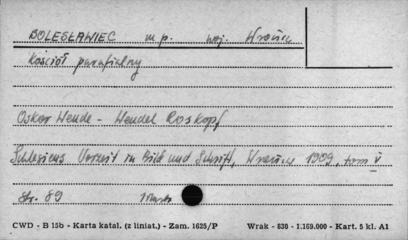 BOLESŁAWIEC m p. woj. Wrocław
Kościół parafialny
Oskar Wende - Wendel Roskopf
Schlesiens Vorzeit in Bild und Schrift, Wrocław 1909, tom V
Str. 89
CWD - B 15b - Karta katal. (z liniat.) - Zam. 1625/P Wrak - 830 - 1.169.000 - Kart. 5 kl. A1